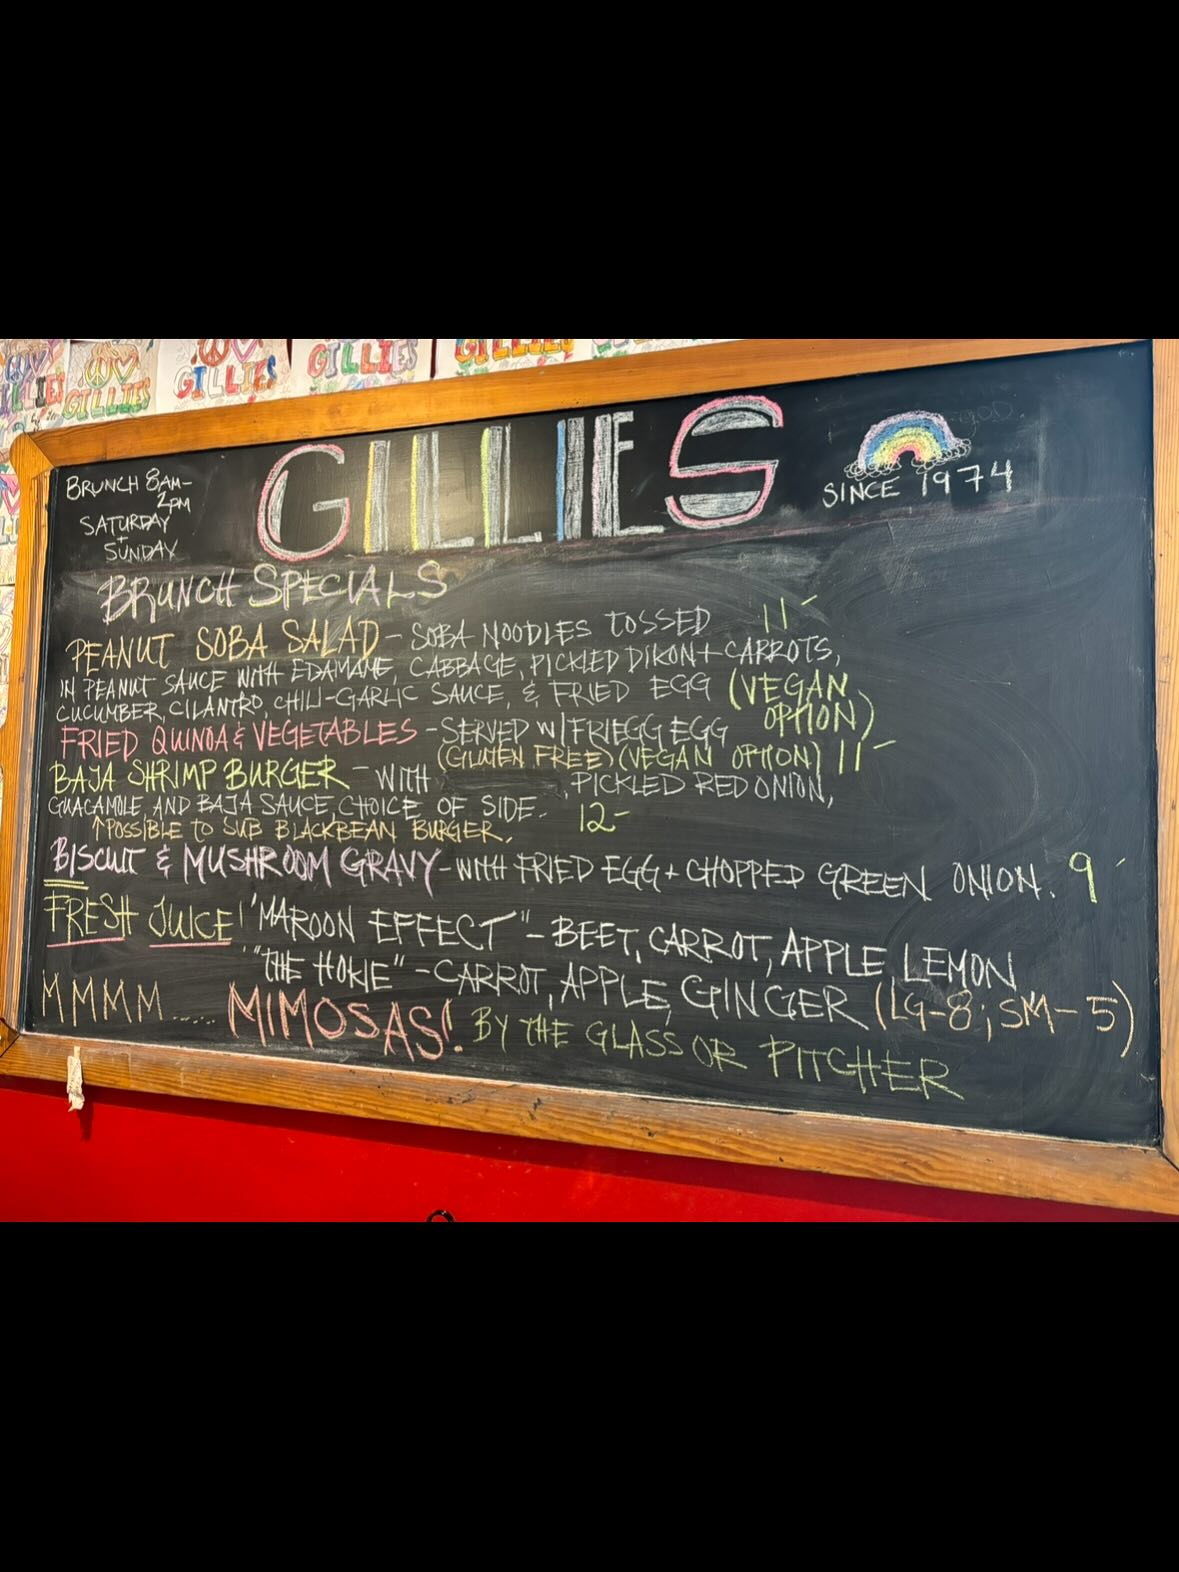 GILLIES
SINCE 1974
BRUNCH 8AM-
2PM
SATURDAY
+
SUNDAY
BRUNCH SPECIALS
PEANUT SOBA SALAD - SOBA NOODLES TOSSED 11-
IN PEANUT SAUCE WITH EDAMAME, CABBAGE, PICKLED DIKON + CARROTS,
CUCUMBER, CILANTRO, CHILI-GARLIC SAUCE, & FRIED EGG (VEGAN
OPTION)
FRIED QUINOA & VEGETABLES - SERVED W/ FRIEGG EGG
(GLUTEN FREE) (VEGAN OPTION) 11-
BAJA SHRIMP BURGER - WITH , PICKLED RED ONION,
GUACAMOLE, AND BAJA SAUCE, CHOICE OF SIDE. 12-
↑POSSIBLE TO SUB BLACKBEAN BURGER.
BISCUIT & MUSHROOM GRAVY - WITH FRIED EGG + CHOPPED GREEN ONION. 9
FRESH JUICE! "MAROON EFFECT" - BEET, CARROT, APPLE LEMON
"THE HOKIE" - CARROT, APPLE, GINGER (LG-8; SM-5)
MMMM..... MIMOSAS! BY THE GLASS OR PITCHER
GILLIES
GILLIES
GILLIES
GILLIES